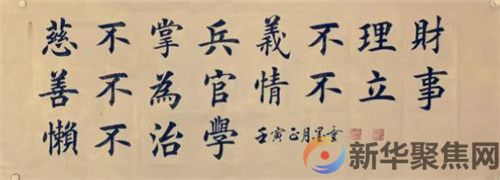 慈不掌兵義不理財
善不為官情不立事
懶不治學
壬寅正月
新华聚焦网